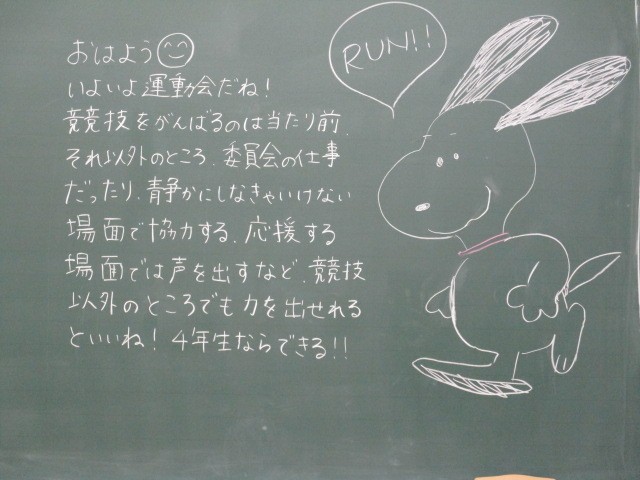 おはよう
いよいよ運動会だね!
競技をがんばるのは当たり前、
それ以外のところ、委員会の仕事
だったり、静かにしなきゃいけない
場面で協力する、応援する
場面では声を出すなど、競技
以外のところでも力を出せれる
といいね! 4年生ならできる!!
RUN!!